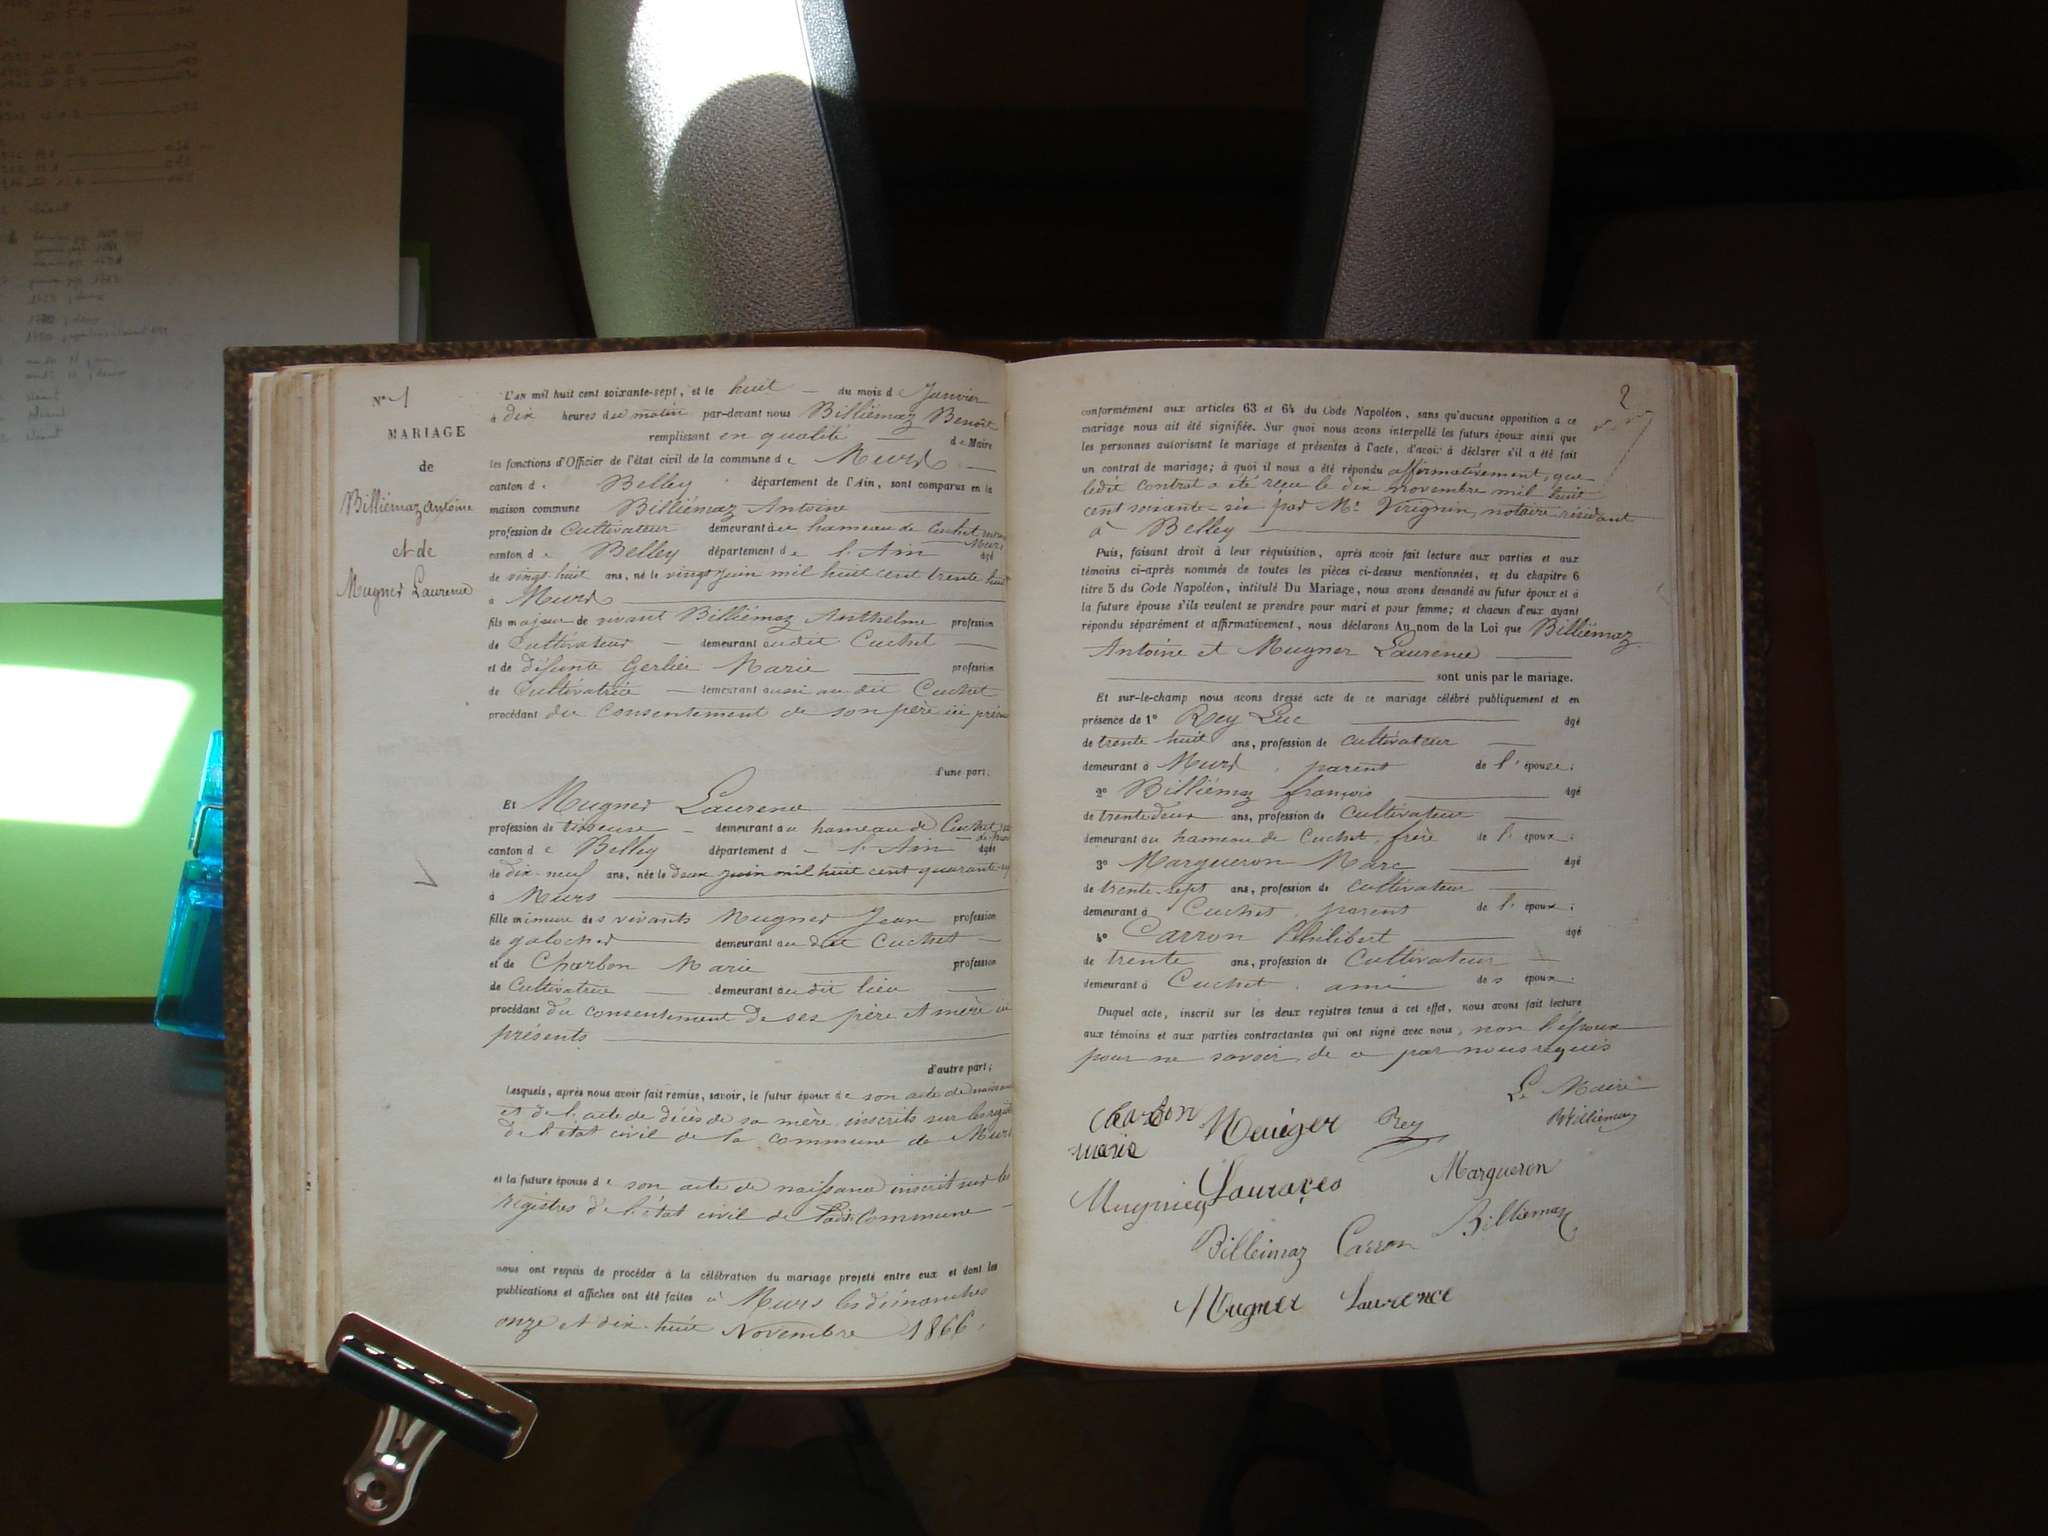 N° 1
MARIAGE
de
Billiémaz Antoine
et de
Mugner Laurence
L'AN mil huit cent soixante-sept, et le huit du mois de Janvier
à dix heures du matin par-devant nous Billiémaz Benoît
remplissant en qualité de Maire
les fonctions d'Officier de l'état civil de la commune de Murs
canton de Belley département de l'Ain, sont comparus en la
maison commune Billiémaz Antoine
profession de Cultivateur demeurant au hameau de Cuchet
Murs
canton de Belley département de l'Ain âgé
de vingt huit ans, né le vingt Juin mil huit cent trente huit
à Murs
fils majeur de vivant Billiémaz Anthelme profession
de Cultivateur demeurant audit Cuchet
et de défunte Gerlier Marie profession
de Cultivatrice demeurant aussi au dit Cuchet
procédant du consentement de son père ici présent
d'une part;
Et Mugner Laurence
profession de tisseuse demeurant au hameau de Cuchet
canton de Belley département de l'Ain âgée
de dix-neuf ans, née le deux juin mil huit cent quarante
à Murs
fille mineure des vivants Mugner Jean profession
de galocher demeurant au dit Cuchet
et de Charbon Marie profession
de Cultivatrice demeurant au dit lieu
procédant du consentement de ses père et mère ici
présents
d'autre part;
Lesquels, après nous avoir fait remise, savoir, le futur époux de son acte de naissance
et de l'acte de décès de sa mère inscrits sur les
de l'état civil de la commune de Murs
et la future épouse de son acte de naissance inscrit sur les
registres de l'état civil de ladite Commune
nous ont requis de procéder à la célébration du mariage projeté entre eux et dont les
publications et affiches ont été faites à Murs les dimanches
onze et dix-huit Novembre 1866.
2
conformément aux articles 63 et 64 du Code Napoléon, sans qu'aucune opposition a ce
mariage nous ait été signifiée. Sur quoi nous avons interpellé les futurs époux ainsi que
les personnes autorisant le mariage et présentes à l'acte, d'avoir à déclarer s'il a été fait
un contrat de mariage; à quoi il nous a été répondu affirmativement, que
ledit contrat a été reçu le dix novembre mil huit
cent soixante-six par Me Virignin, notaire résidant
à Belley
Puis, faisant droit à leur réquisition, après avoir fait lecture aux parties et aux
témoins ci-après nommés de toutes les pièces ci-dessus mentionnées, et du chapitre 6
titre 5 du Code Napoléon, intitulé Du Mariage, nous avons demandé au futur époux et à
la future épouse s'ils veulent se prendre pour mari et pour femme; et chacun d'eux ayant
répondu séparément et affirmativement, nous déclarons Au nom de la Loi que Billiémaz
Antoine et Mugner Laurence
sont unis par le mariage.
Et sur-le-champ nous avons dressé acte de ce mariage célébré publiquement et en
présence de 1° Rey Luc âgé
de trente huit ans, profession de cultivateur
demeurant à Murs, parent de l'épouse;
2° Billiémaz françois âgé
de trente deux ans, profession de Cultivateur
demeurant au hameau de Cuchet, frère de l'époux;
3° Margueron Marc âgé
de trente-sept ans, profession de cultivateur
demeurant à Cuchet, parent de l'époux;
4° Carron Philibert âgé
de trente ans, profession de Cultivateur
demeurant à Cuchet, ami des époux.
Duquel acte, inscrit sur les deux registres tenus à cet effet, nous avons fait lecture
aux témoins et aux parties contractantes qui ont signé avec nous, non l'époux
pour ne savoir, de ce par nous requis
Le Maire
Billiémaz
Charbon
marie
Rey
Margueron
Mugnier
Billiémaz Carron Billiemaz
Mugner Laurence